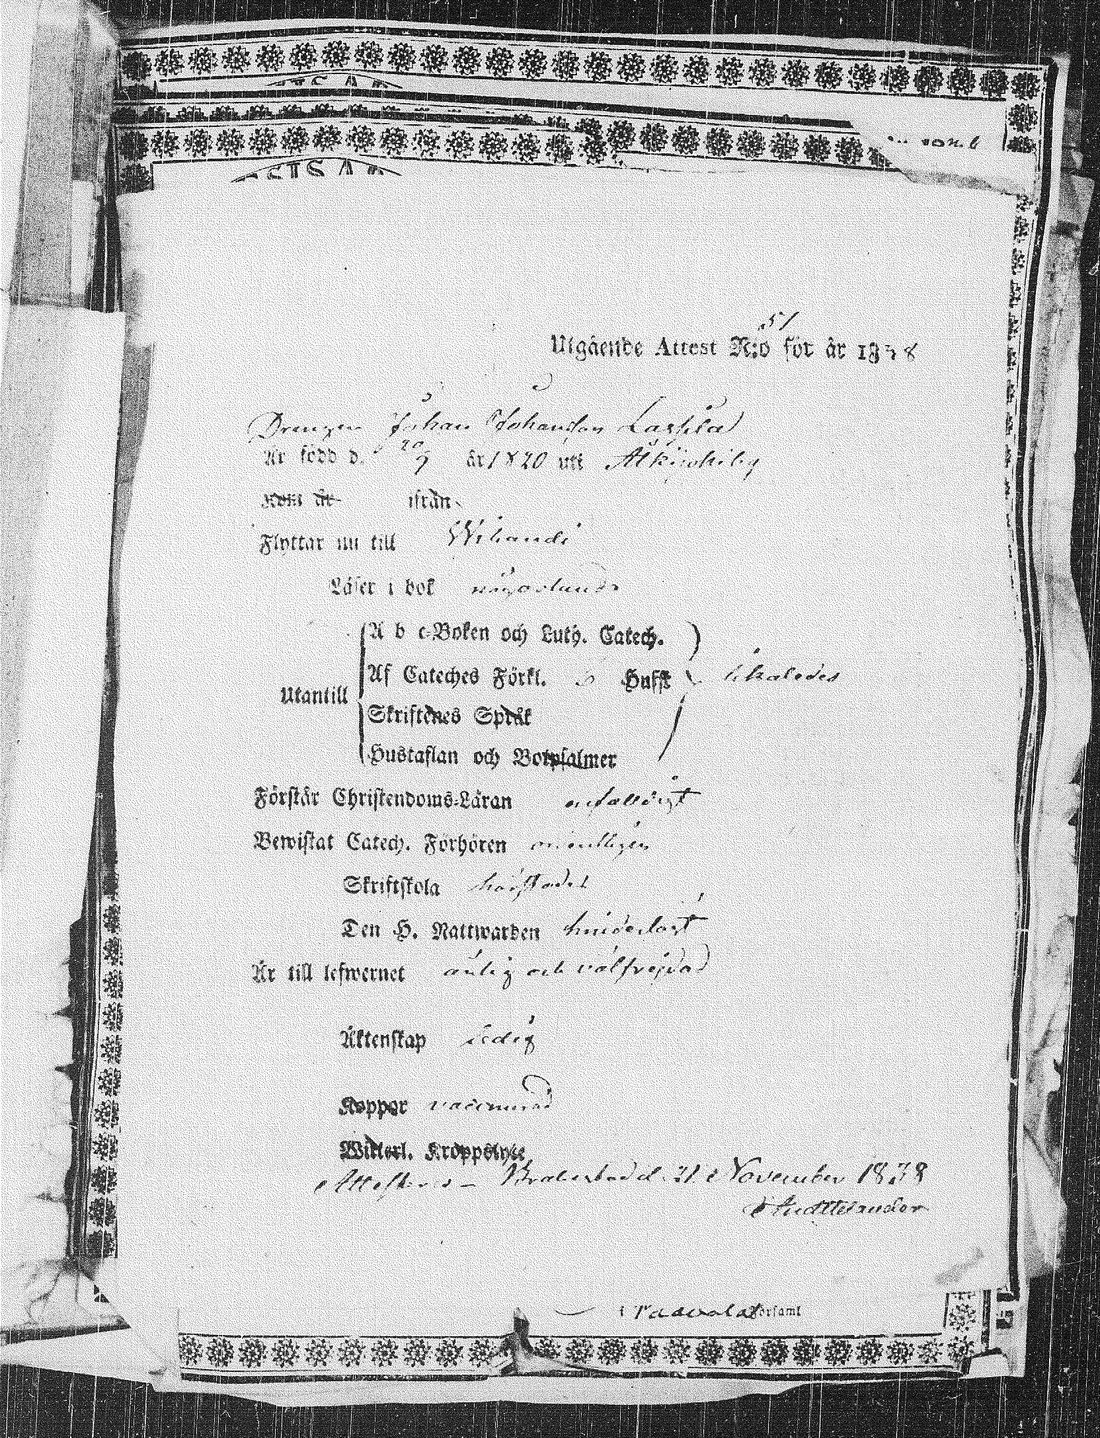 51
Utgående Attest N:o för år 1838
Drengen Johan Johansson Lassila
Är född d. 20/9 år 1820 uti
Kom år ifrån
Flyttar nu till Wihandi
Läser i bok någorlunda
A b c-Boken och Luth. Catech.
Af Cateches Förkl. Hufst likaledes
Utantill
Skriftenes Språk
Hustaflan och Botpsalmer
Förstår Christendoms-Läran enfaldigt
Bewistat Catech. Förhören ordentligen
Skriftskola
Den H. Nattwarden hinderlöst
Är till lefwernet ärlig och välfrejdad
Äktenskap ledig
Koppor vaccinerad
Witterl. Kroppslyte
Attesteras Brahestad d. 21 November 1838
i Paavola församl